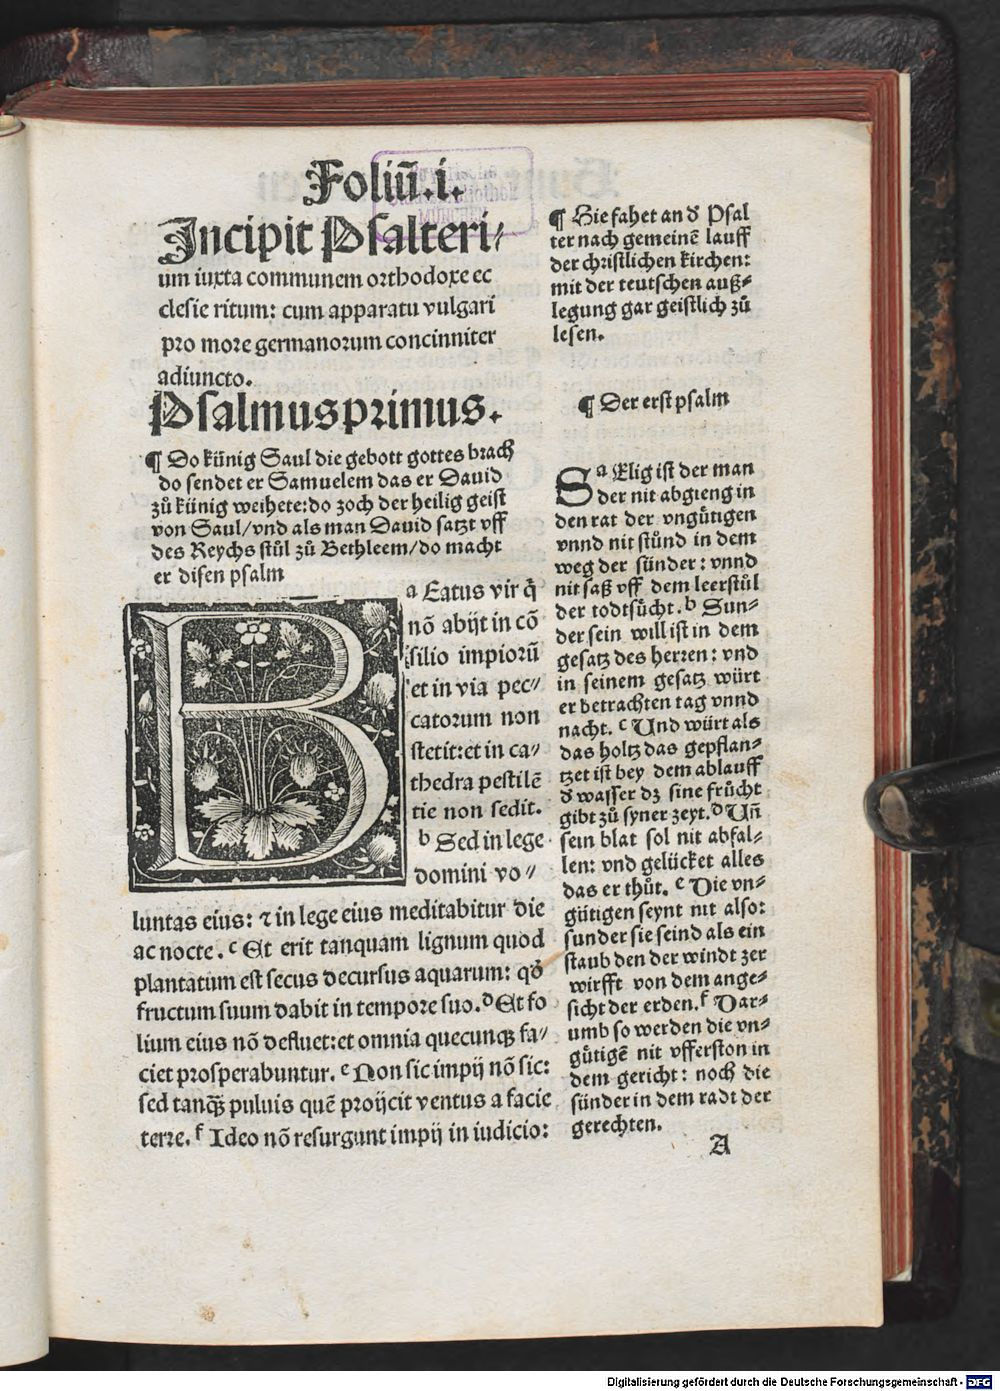 Foliū.i.
Incipit Psalteri/
um iuxta communem orthodoxe ec
clesie ritum: cum apparatu vulgari
pro more germanorum concinniter
adiuncto.
Psalmusprimus.
¶ Do künig Saul die gebott gottes brach
do sendet er Samuelem das er Dauid
zů künig weihete:do zoch der heilig geist
von Saul/vnd als man Dauid satzt vff
des Reychs stůl zů Bethleem/do macht
er disen psalm
a Eatus vir q̄
B
nō abijt in cō
silio impiorū
et in via pec/
catorum non
stetit:et in ca/
thedra pestilē
tie non sedit.
b Sed in lege
domini vo/
luntas eius: ⁊ in lege eius meditabitur die
ac nocte. c Et erit tanquam lignum quod
plantatum est secus decursus aquarum: qď
fructum suum dabit in tempore suo. d Et fo
lium eius nō defluet:et omnia quecunqꝫ fa/
ciet prosperabuntur. e Non sic impij nō sic:
sed tanqꝫ puluis quē proijcit ventus a facie
terre. f Ideo nō resurgunt impij in iudicio:
¶ Hie fahet an ď Psal
ter nach gemeinē lauff
der christlichen kirchen:
mit der teutschen auß⸗
legung gar geistlich zů
lesen.
¶ Der erst psalm
S a Elig ist der man
der nit abgieng in
den rat der vngůtigen
vnnd nit stůnd in dem
weg der sünder: vnnd
nit saß vff dem leerstůl
der todtsücht. b Sun⸗
der sein will ist in dem
gesatz des herren: vnd
in seinem gesatz würt
er betrachten tag vnnd
nacht. c Und würt als
das holtz das gepflan⸗
tzet ist bey dem ablauff
ď wasser dz sine frücht
gibt zů syner zeyt. d Uñ
sein blat sol nit abfal⸗
len: vnd gelücket alles
das er thůt. e Die vn⸗
gütigen seynt nit also:
sunder sie seind als ein
staub den der windt zer
wirfft von dem ange⸗
sicht der erden. f Dar⸗
umb so werden die vn⸗
gůtigē nit vfferston in
dem gericht: noch die
sünder in dem radt der
gerechten.
A
Digitalisierung gefördert durch die Deutsche Forschungsgemeinschaft - DFG